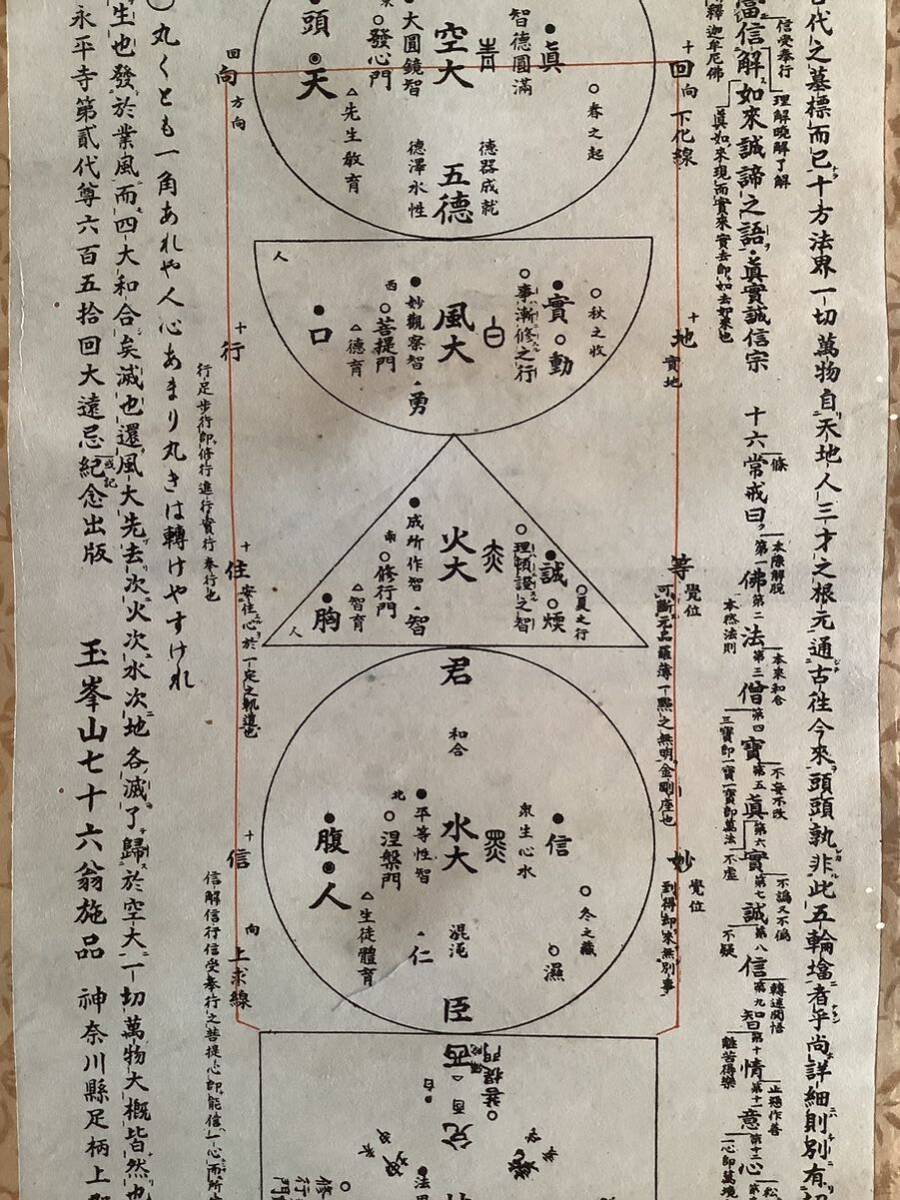 古代之墓標而已十方法界一切萬物自天地人三才之根元通古往今來頭頭孰非此五輪塔者乎尚詳細則別有
信受奉行
理解曉解了解
當信解如來誠諦之語・眞實誠信宗
釋迦牟尼佛
眞如來現而實來實去即如去如來也
十六條常戒曰
第一佛第二法第三僧第四寶第五眞第六實第七誠第八信第九知第十情第十一意第十二心
本際解脱
本來和合
不妄不改
不譌又不偏
轉迷開悟
止惡作善
本然法則
三寶即一寶一寶即萬法
不虚
不疑
離苦得樂
一心即萬境
十回向下化線
十地實地
等覺位
可斷元品羅薄一黙之無明金剛座也
妙覺位
到得却來無別事
春之起
眞
智德圓滿
德器成就
青
空大
五德
大圓鏡智
德澤水性
發心門
先生教育
頭
天
人
秋之收
實
動
事漸修之行
白
風大
妙觀察智・勇
西
菩提門
德育
口
夏之行
誠
煗
理頓證之智
火大
成所作智・智
南
修行門
智育
胸
人
君
和合
水大
混沌
臣
冬之藏
信
濕
衆生心水
平等性智・仁
北
涅槃門
生徒體育
腹
人
菩提門
西
酉
兌
白
修行門
十回向方向
十行
行足步行即修行進行實行奉行也
十住
安住心於一定之軌道也
十信
向上求線
信解信行信受奉行之菩提心即能信一心而所
丸くとも一角あれや人心あまり丸きは轉けやすけれ
生也發於業風而四大和合矣滅也還風大先去次火次水次地各滅了歸於空大一切萬物大概皆然也
永平寺第貳代尊六百五拾回大遠忌紀念出版
或記
玉峯山七十六翁施品
神奈川縣足柄上郡